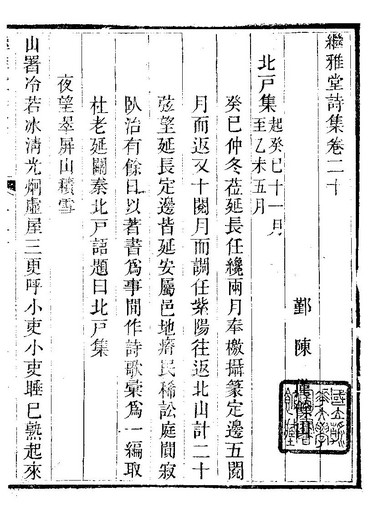 繼雅堂詩集卷二十
鄞陳僅餘山
北戸集起癸巳十一月至乙未五月
癸巳仲冬莅延長任纔兩月奉檄攝篆定邊五閱
月而返又十閱月而調任紫陽往返北山計二十
弦望延長定邊皆延安屬邑地瘠民稀訟庭閒寂
臥治有餘日以著書爲事間作詩歌彚爲一編取
杜老延關秦北戸語題曰北戸集
夜望翠屏山積雪
山署冷若冰淸光烱虛屋三更呼小吏小吏睡已熟起來